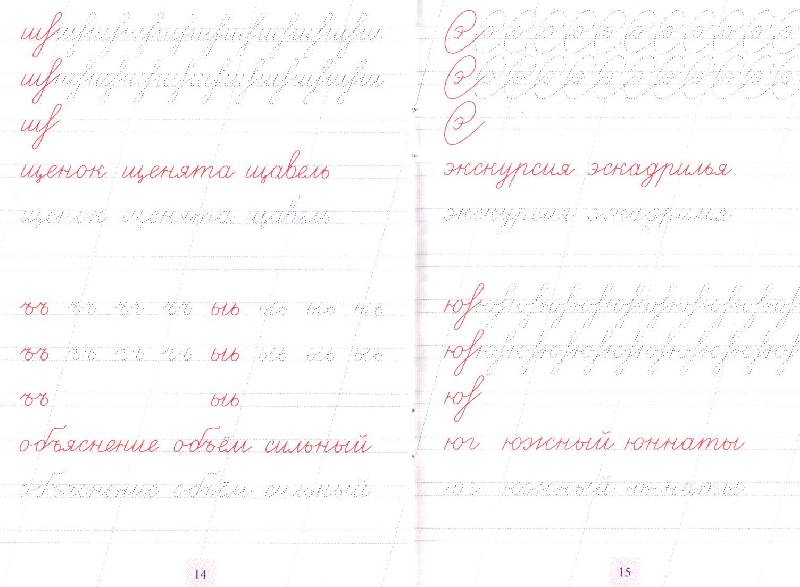 щенок щенята щавель
щенок щенята щавель
ъъ ъъ ъъ ъъ ыь ыь ыь ыь
ъъ ъъ ъъ ъъ ыь ыь ыь ыь
ъъ ыь
объяснение объём сильный
объяснение объём сильный
14
экскурсия эскадрилья
экскурсия эскадрилья
юг южный юннаты
юг южный юннаты
15